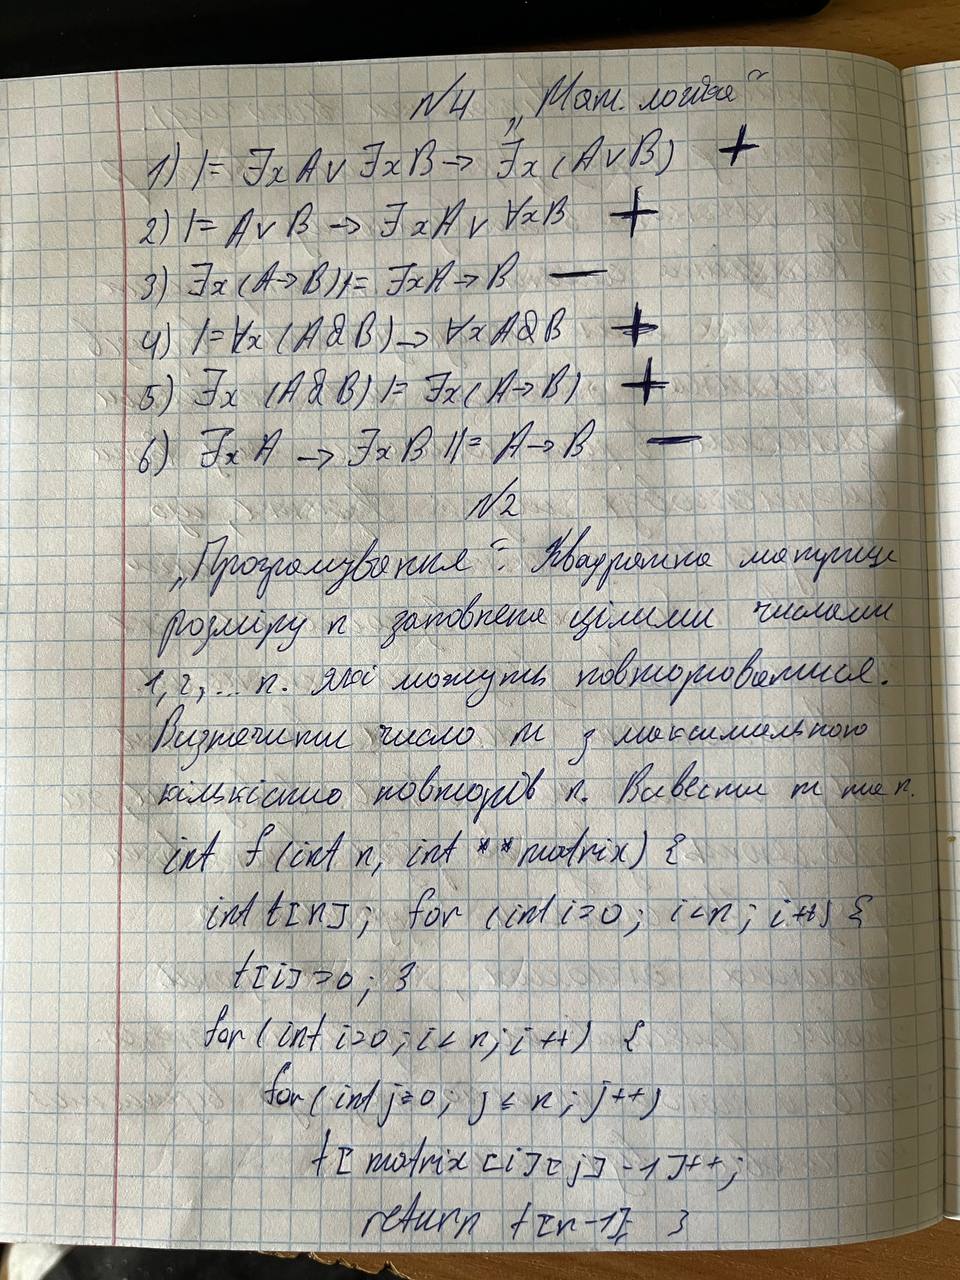 N4 „Мат. логіка"
1) |= ∃x A ∨ ∃x B → ∃x (A ∨ B) +
2) |= A ∨ B → ∃x A ∨ ∀x B +
3) ∃x (A → B) |= ∃x A → B —
4) |= ∀x (A & B) → ∀x A & B +
5) ∃x (A & B) |= ∃x (A → B) +
6) ∃x A → ∃x B ||= A → B —
N2
„Програмування": Квадратна матриця
розміру n заповнена цілими числами
1, 2, ... n. які можуть повторюватися.
Визначити число m з максимальною
кількістю повторів n. Вивести m та n.
int f (int n, int **matrix) {
int t[n]; for (int i=0; i<n; i++) {
t[i]=0; }
for (int i=0; i<n; i++) {
for (int j=0; j<n; j++)
t[matrix[i][j]-1]++;
return t[n-1]; }